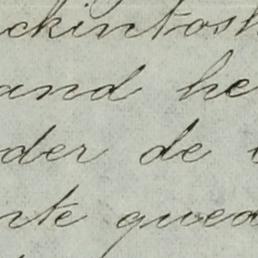 ckintosh
and he
der de
nte qued